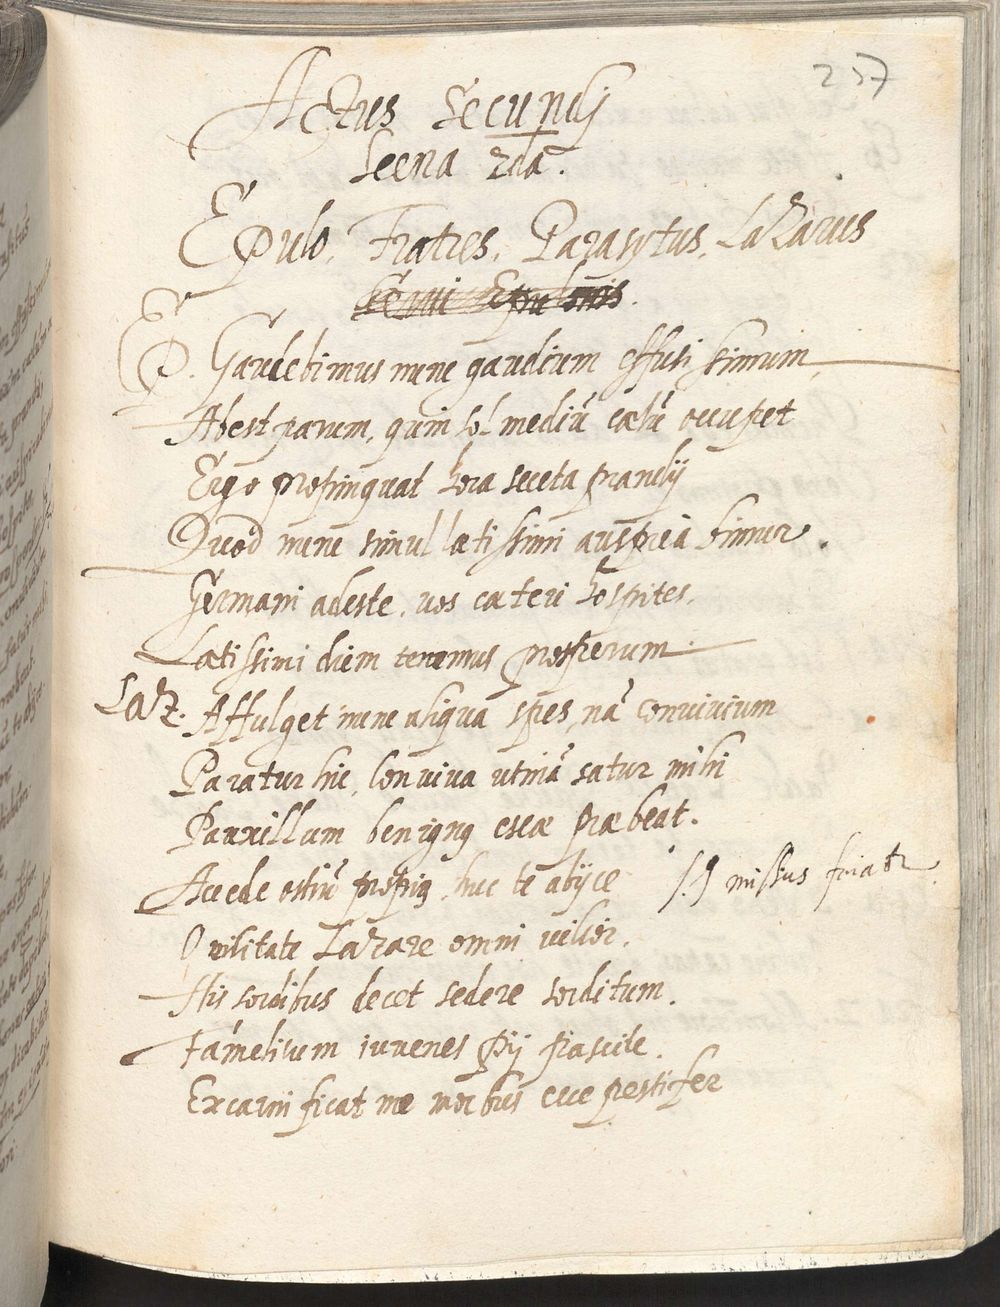 257
Actus Secundj
Scena 2da.
Epulo, Fratres, Parasytus, LaZarus
Servi Epulonis.
Ep. Gaudebimus nunc gaudium effusissimum,
Abest parum, quin sol mediũ cælũ occupet
Ergo propinquat hora seceta prandij
Quod nunc simul lætissimi auspicabimur.
Germani adeste, vos cæteri hospites,
Lætissimi diem teramus prosperum.
LaZ. Affulget nunc aliqua spes, nã convivium
Paratur hic, conviva utinã satur mihi
Pauxillum benignq escæ præbeat.
Accede ostiũ propiq, huc te abijce
O vilitate LaZare omni vilior,
His sordibus decet sedere sorditum.
Famelicum iuvenes pij pascite.
Excarnificat me morbus ecce pestifer
missus